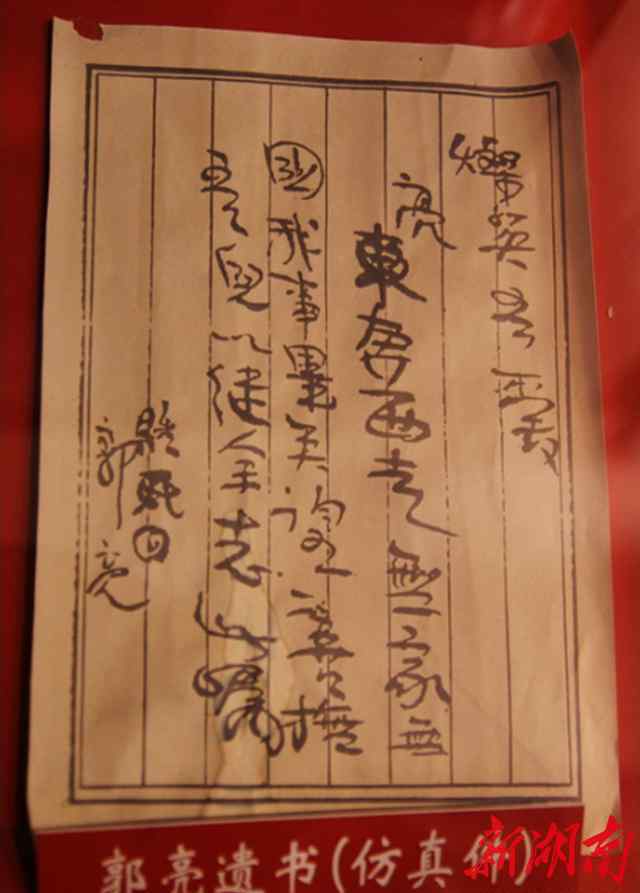 燦英吾愛
亮東奔西走無家無
國我事畢矣望善撫
吾兒以继全志此嘱
臨死日
郭亮
郭亮遗书(仿真件)
新湖南